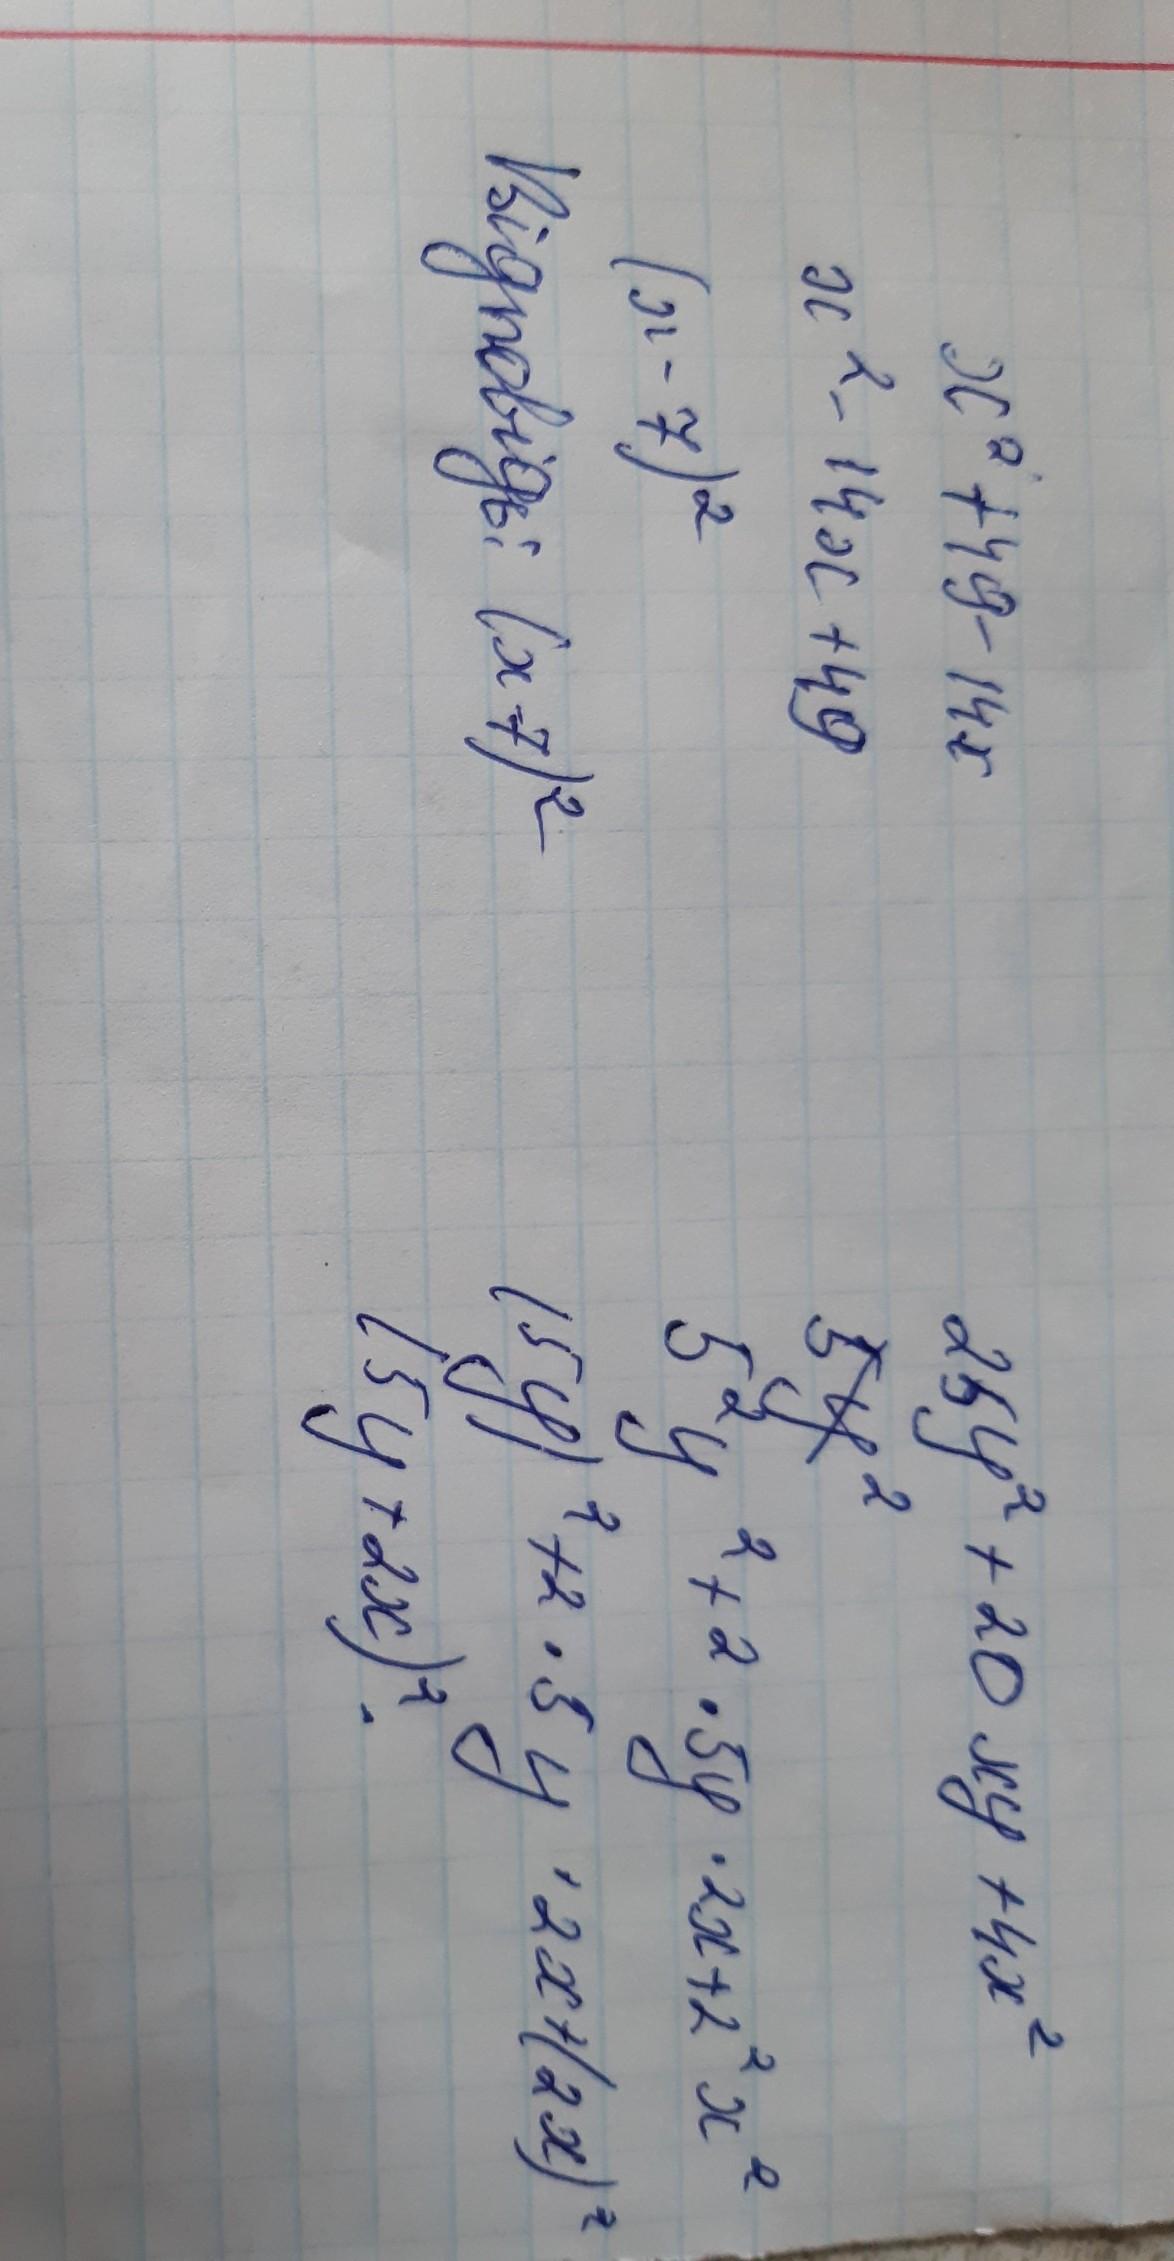 x² + 49 - 14x
x² - 14x + 49
(x - 7)²
Відповідь: (x - 7)²
25y² + 20xy + 4x²
5y²
5²y² + 2 · 5y · 2x + 2²x²
(5y)² + 2 · 5y · 2x + (2x)²
(5y + 2x)².